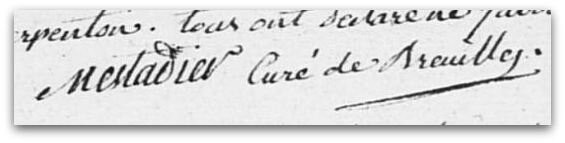 rpenton. tous ont déclaré ne
Mestadier Curé de Breuilles.